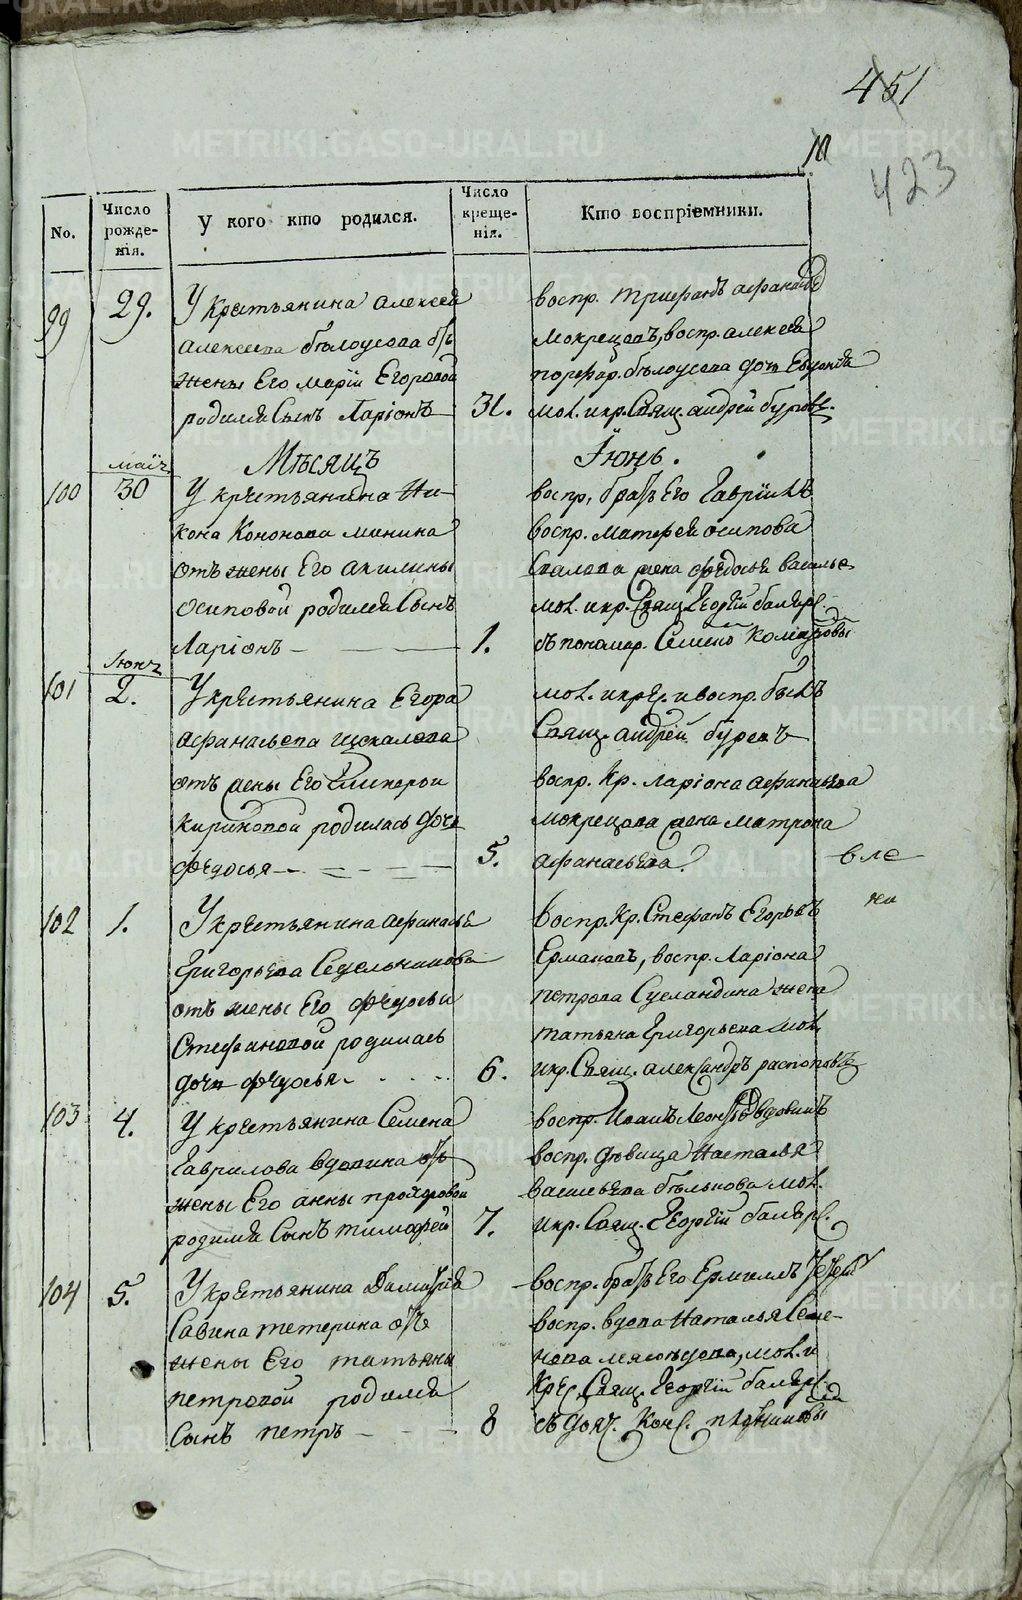 451
10
423
No.
Число рожденія.
У кого кто родился.
Число крещенія.
Кто воспріемники.
99 29. У Крестьянина Алексея
Алексеева бѣлоусова отъ
жены Его Маріи Егоровой
родился Сынъ Ларіонъ 31.
воспр. Трифанъ Афанасьев
Мокрецовъ, воспр. Алексея
бѣлоусова дочь Евдокія
мол. и кр. Свящ. Андрей Буровъ.
Мѣсяцъ Іюнь.
маія
100 30 У крестьянина Ни-
кона Кононова Минина
отъ жены Его Акилины
Осиповой родился Сынъ
Ларіонъ 1.
воспр. братъ Его Гавріилъ
воспр. Матфея Осипова
жена Федосья Василье
мол. и кр. Свящ. Георгій
съ пономар. Семено
Іюня
101 2. У крестьянина Егора
Афанасьева Щукалева
отъ жены Его Гликерьи
Кириковой родилась дочь
Федосья 5.
мол. и кре. и воспр. былъ
Свящ. Андрей Буровъ
воспр. Кр. Ларіона Афанасьева
Мокрецова жена Матрона
Афанасьева.
102 1. У крестьянина Афанасья
Григорьева Седельникова
отъ жены Его Федосьи
Стефановой родилась
дочь Федосья 6.
воспр. Кр. Стефанъ Егорьевъ
Ермаковъ, воспр. Ларіона
Петрова Сусландина жена
Татьяна Григорьева мол.
и кр. Свящ. Александръ Распоповъ
103 4. У крестьянина Семена
Гаврилова Вдовина отъ
жены Его Анны Прохоровой
родился Сынъ Тимофей 7.
воспр. Иванъ Вдовинъ
воспр. дѣвица Наталья
Васильева бѣлькова мол.
и кр. Свящ. Георгій
104 5. У крестьянина Дометія
Савина Тетерина отъ
жены Его Татьяны
Петровой родился
Сынъ Петръ 8
воспр. братъ Его Ермилъ
воспр. вдова Наталья Семе-
нова Мясоѣдова, мол. и
Кре. Свящ. Георгій
съ дьяч.
METRIKI.GASO-URAL.RU